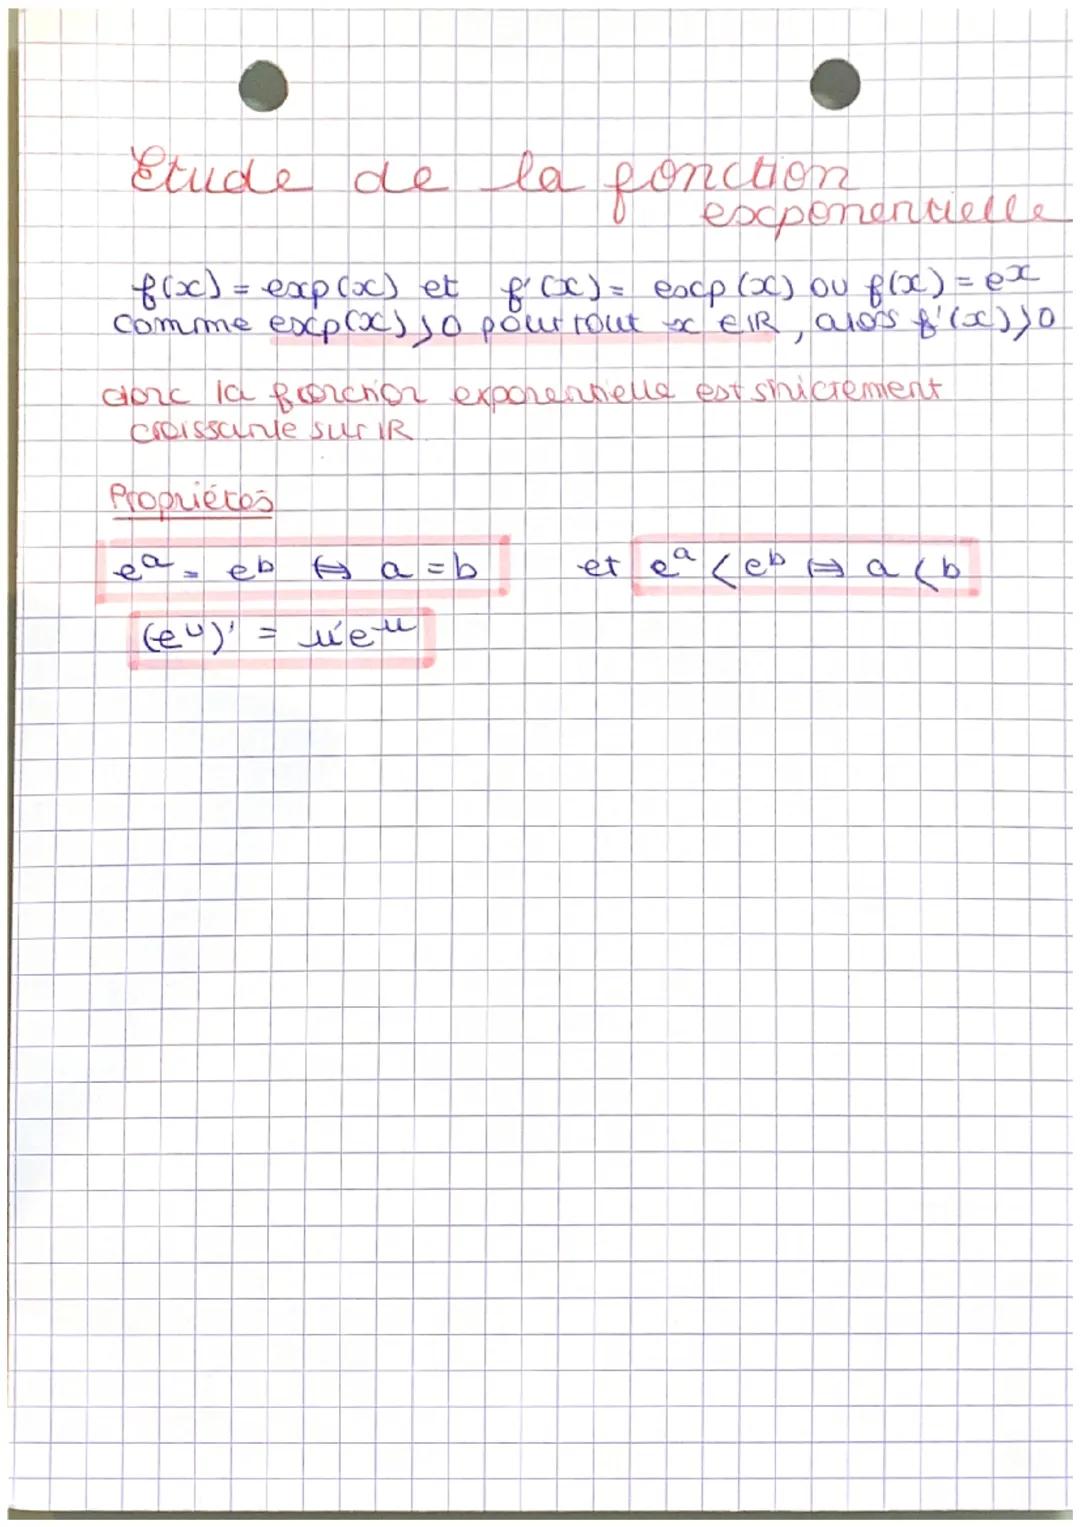 Etude de la fonction
exponentielle
f(x) = exp(x) et f'(x) = exp(x) ou f(x) = eˣ
comme exp(x) > 0 pour tout x ∈ ℝ, alors f'(x) > 0
donc la fonction exponentielle est strictement
croissante sur ℝ
Propriétés
eᵃ = eᵇ ⇔ a = b et eᵃ < eᵇ ⇔ a < b
(eᵘ)' = u'eᵘ